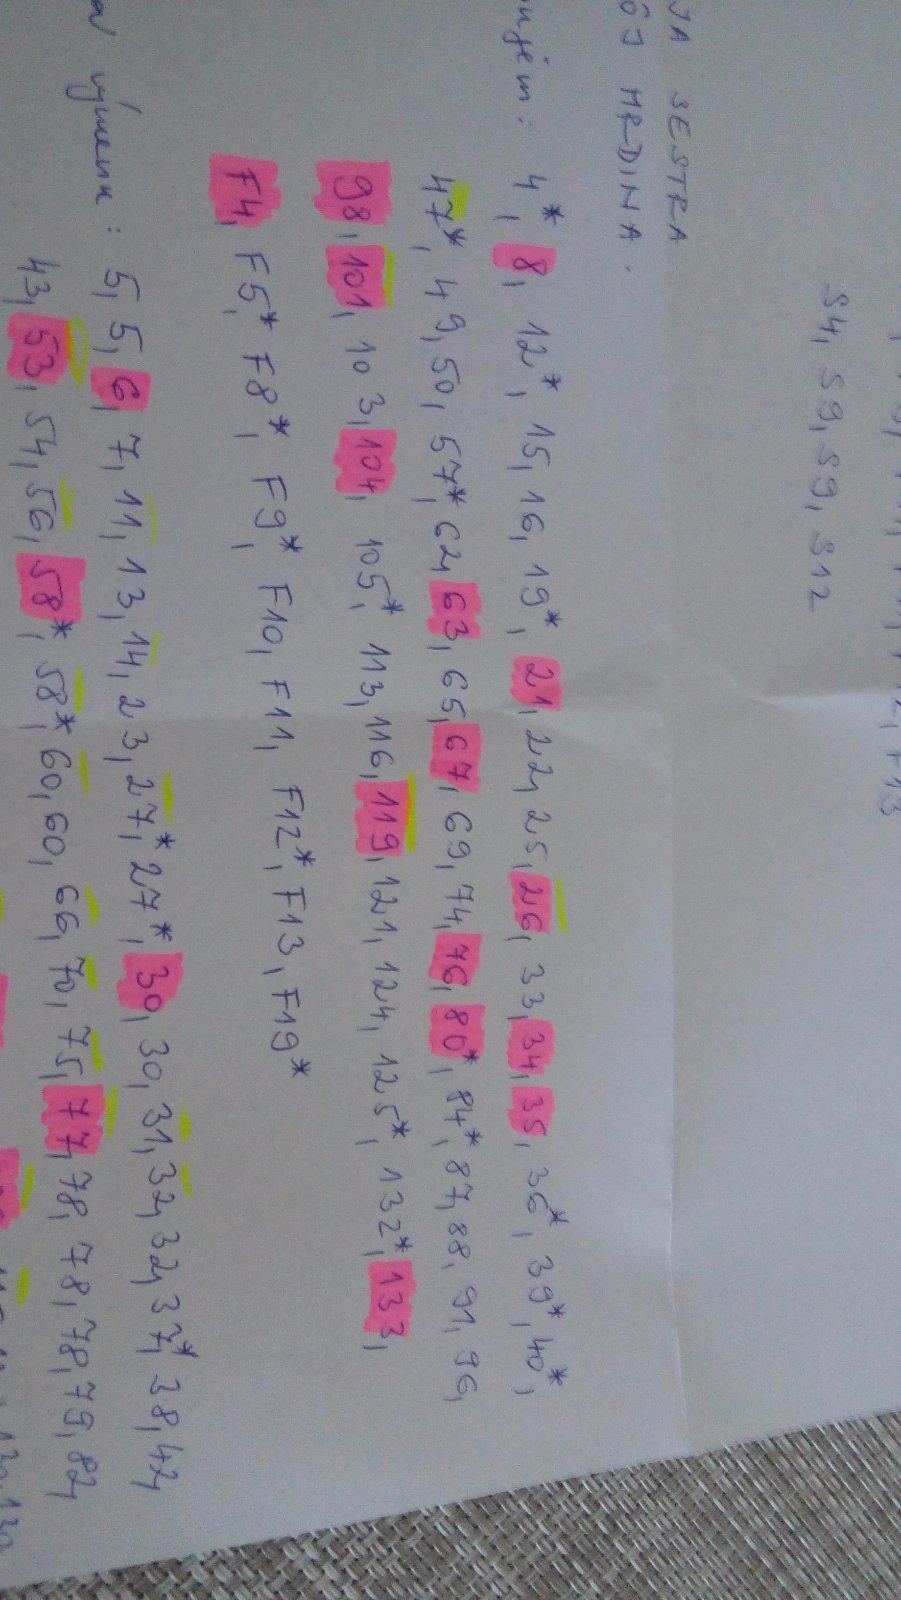 S4, S9, S9, S12
SESTRA
MRDINA.
4*, 8, 12*, 15, 16, 19*, 21, 22, 25, 26, 33, 34, 35, 36*, 39*, 40*,
47*, 49, 50, 57*, 62, 63, 65, 67, 69, 74, 76, 80*, 84*, 87, 88, 91, 96,
98, 101, 103, 104, 105*, 113, 116, 119, 121, 124, 125*, 132*, 133,
F4, F5*, F8*, F9*, F10, F11, F12*, F13, F19*
výmenu : 5, 5, 6, 7, 11, 13, 14, 23, 27*, 27*, 30, 30, 31, 32, 32, 37*, 38, 42,
43, 53, 54, 56, 58*, 58*, 60, 60, 66, 70, 75, 77, 78, 78, 78, 79, 82,